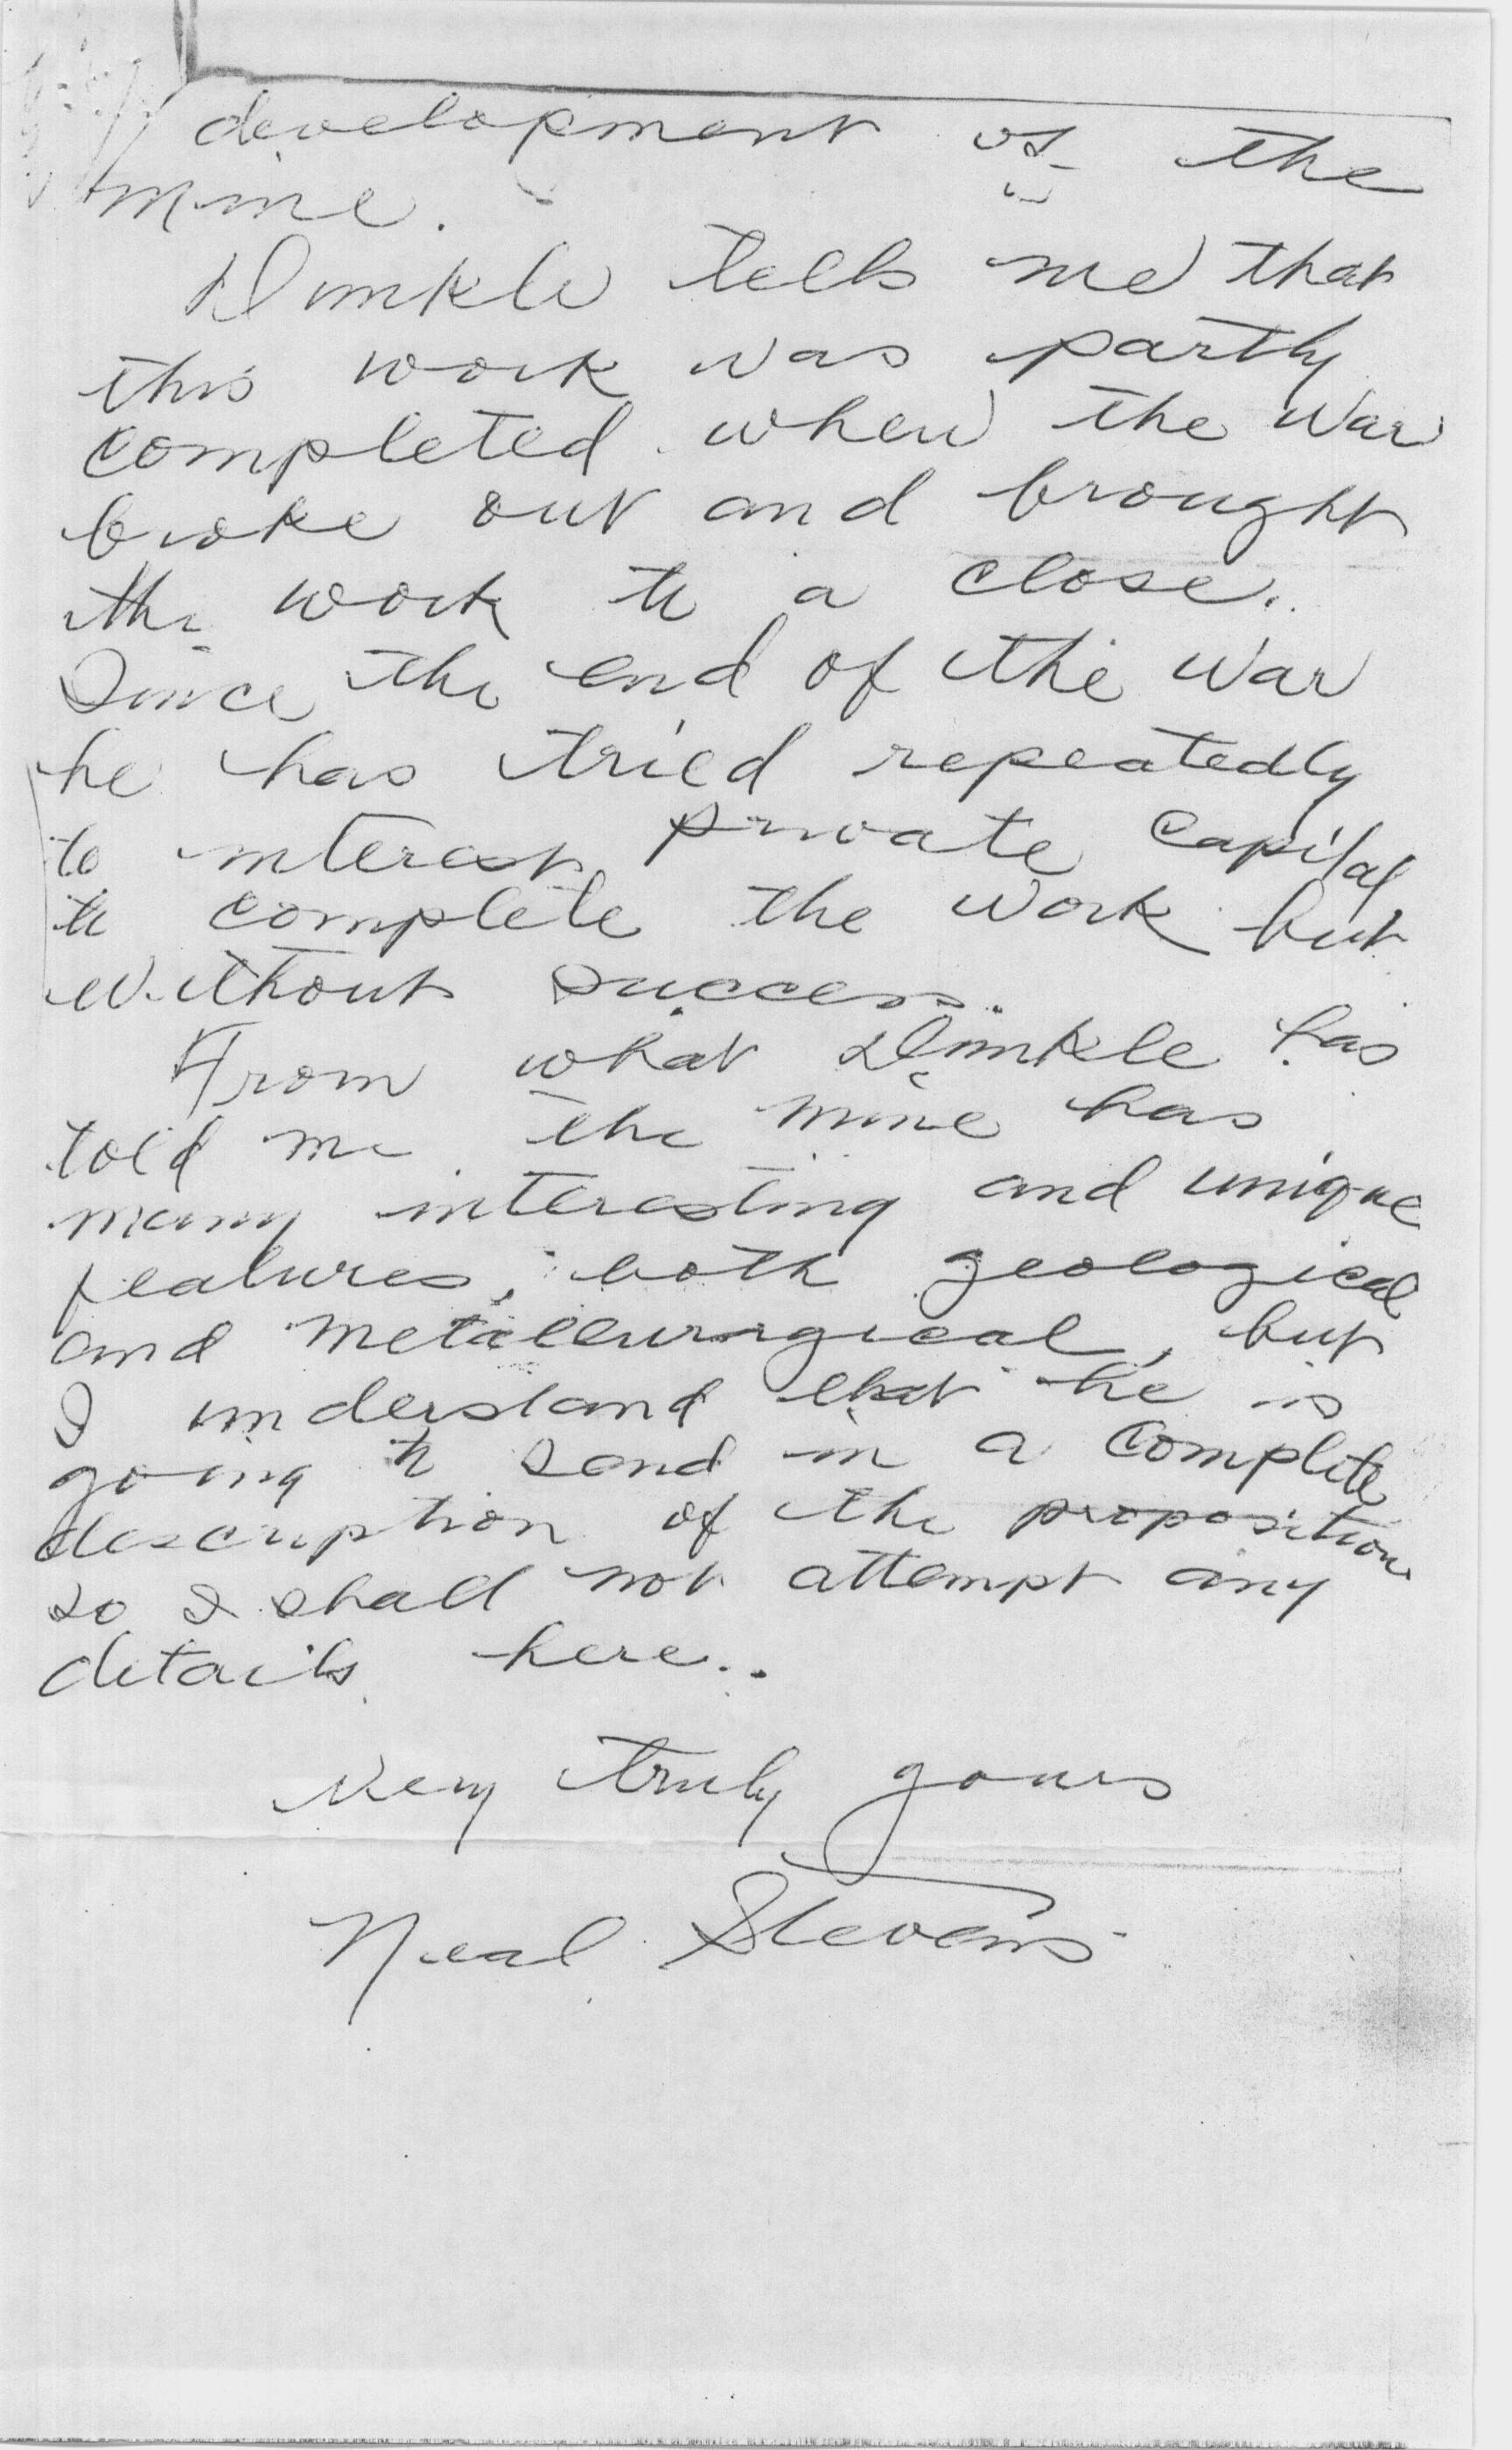 development of the
mine.
Dunkle tells me that
this work was partly
completed when the war
broke out and brought
the work to a close.
Since the end of the war
he has tried repeatedly
to interest private capital
to complete the work but
without success.
From what Dunkle has
told me the mine has
many interesting and unique
features, both geological
and metallurgical, but
I understand that he is
going to send in a complete
description of the proposition
so I shall not attempt any
details here.
Very truly yours
Neal Stevens